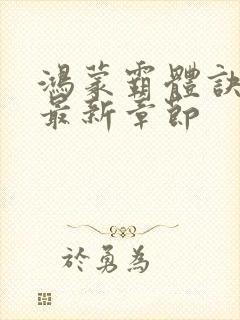 鴻蒙霸體訣
最新章節
於勇為